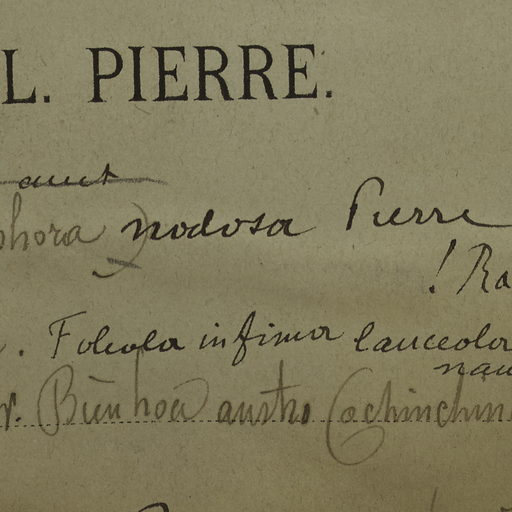 L. PIERRE.
auct
phora nodosa Pierre
! Ra
. Foliola infima lanceola
nau
r. Bien hoa austro Cochinchin